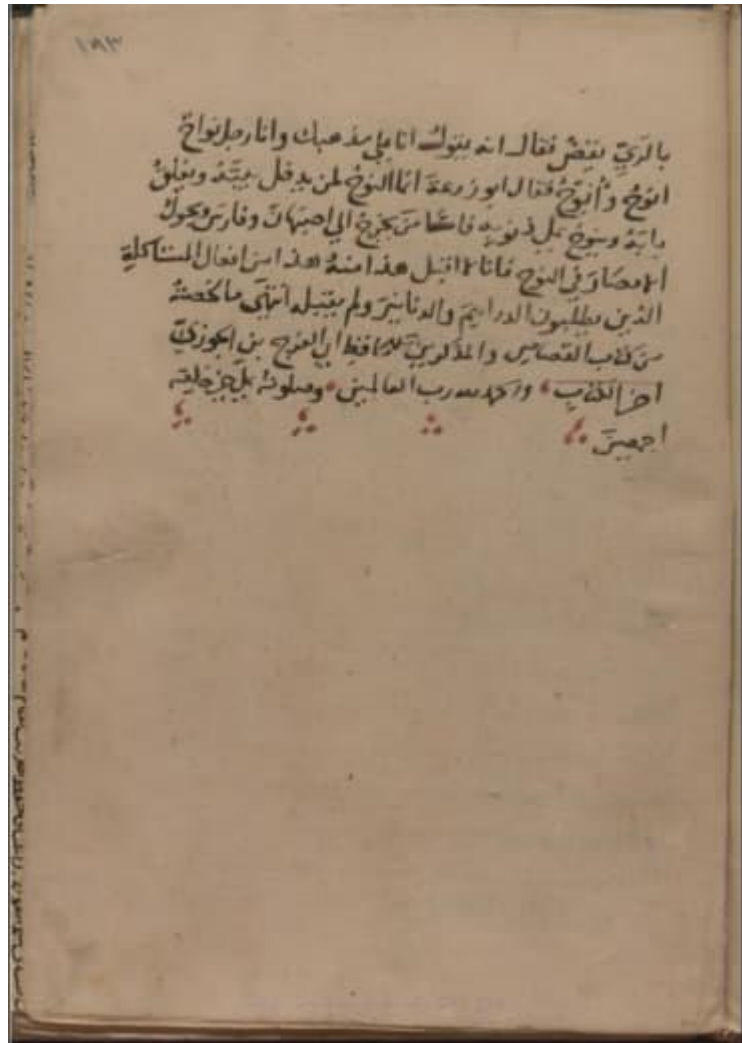 ١٨٣
بالري يقص فقال انه يقول انا علي مذهبك وانا رجل نواح
انوح وأنوح فقال ابو زرعة انما النوح لمن يدخل بيته ويغلق
بابه وينوح علي ذنوبه فاما من يخرج الي اصبهان وفارس ويجول
الامصار في النوح فانا لا اقبل هذا منه هذا من افعال المستاكلة
الذين يطلبون الدراهم والدنانير ولم يقبله انتهى ما لخصته
من كتاب القصاص والمذكرين للحافظ ابي الفرج بن الجوزي
اخر الكتاب والحمد لله رب العالمين وصلوته علي خير خلقه
اجمعين